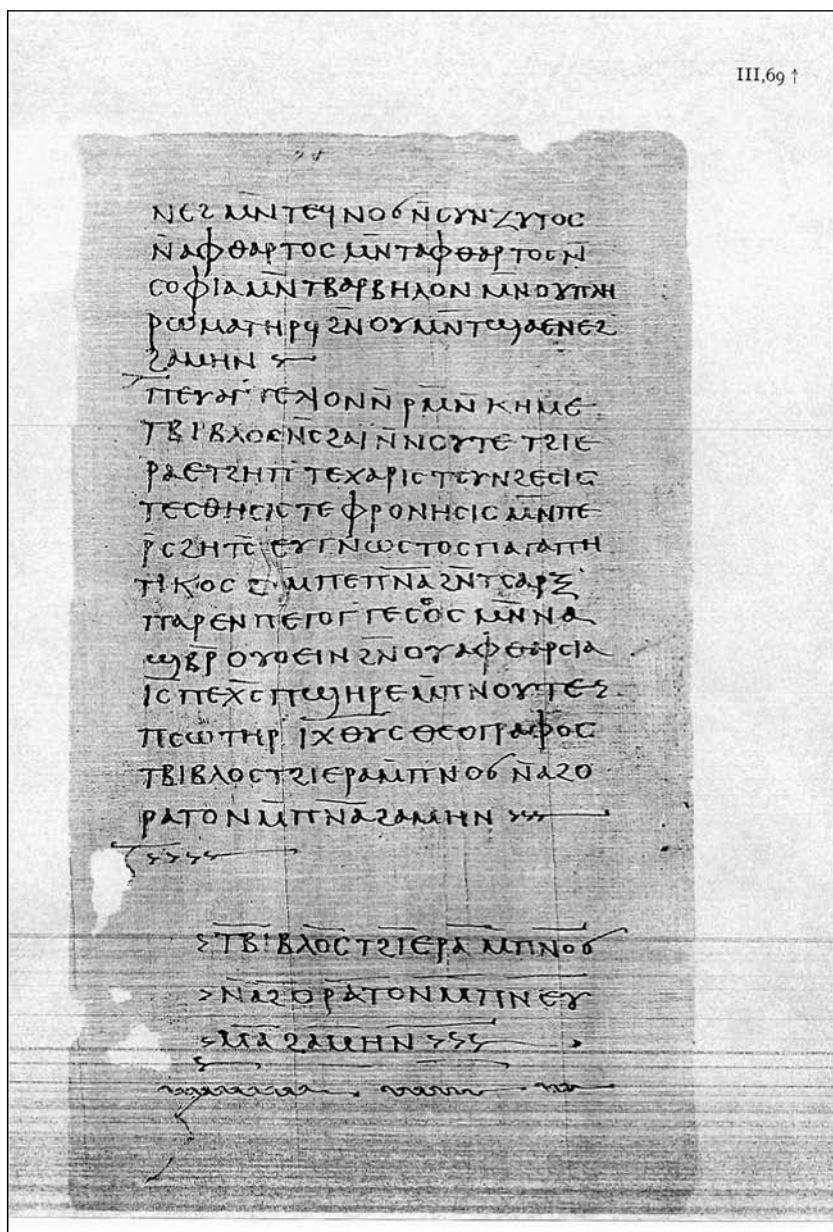 III,69 ↑
ⲛⲉϩ ⲙⲛ̄ ⲧⲉϥⲛⲟϭ ⲛ̄ⲥⲩⲛⲍⲩⲅⲟⲥ
ⲛ̄ⲁⲫⲑⲁⲣⲧⲟⲥ ⲙⲛ̄ ⲧⲁⲫⲑⲁⲣⲧⲟⲥ ⲛ̄
ⲥⲟⲫⲓⲁ ⲙⲛ̄ ⲧⲃⲁⲣⲃⲏⲗⲟⲛ ⲙⲛ̄ ⲟⲩⲡⲗⲏ
ⲣⲱⲙⲁ ⲧⲏⲣϥ ϩⲛ̄ ⲟⲩⲙⲛ̄ⲧϣⲁⲉⲛⲉϩ
ϩⲁⲙⲏⲛ
ⲡⲉⲩⲁⲅⲅⲉⲗⲓⲟⲛ ⲛ̄ⲣⲙ̄ⲛⲕⲏⲙⲉ
ⲧⲃⲓⲃⲗⲟⲥ ⲛ̄ⲥϩⲁⲓ̈ ⲛ̄ⲛⲟⲩⲧⲉ ⲧϩⲓⲉ
ⲣⲁ ⲉⲧϩⲏⲡ ⲧⲉⲭⲁⲣⲓⲥ ⲧⲥⲩⲛϩⲉⲥⲓⲥ
ⲧⲉⲥⲑⲏⲥⲓⲥ ⲧⲉⲫⲣⲟⲛⲏⲥⲓⲥ ⲙⲛ̄ ⲡⲉ
ⲣ̄ⲥϩⲏⲧⲥ̄ ⲉⲩⲅⲛⲱⲥⲧⲟⲥ ⲡⲁⲅⲁⲡⲏ
ⲧⲓⲕⲟⲥ ϩⲙ ⲡⲉⲡⲛ̄ⲁ̄ ϩⲛ̄ ⲧⲥⲁⲣⲝ
ⲡⲁⲣⲉⲛ ⲡⲉ ⲅⲟⲅⲅⲉⲥⲥⲟⲥ ⲙⲛ̄ ⲛⲁ
ϣⲃⲣ̄ⲟⲩⲟⲉⲓⲛ ϩⲛ̄ ⲟⲩⲁⲫⲑⲁⲣⲥⲓⲁ
ⲓ̄ⲥ̄ ⲡⲉⲭ̄ⲥ̄ ⲡϣⲏⲣⲉ ⲙ̄ⲡⲛⲟⲩⲧⲉ ⲥ
ⲡⲥⲱⲧⲏⲣ ⲓ̄ⲭ̄ⲑ̄ⲩ̄ⲥ̄ ⲑⲉⲟⲅⲣⲁⲫⲟⲥ
ⲧⲃⲓⲃⲗⲟⲥ ⲧϩⲓⲉⲣⲁ ⲙ̄ⲡⲛⲟϭ ⲛ̄ⲁϩⲟ
ⲣⲁⲧⲟⲛ ⲙ̄ⲡⲛ̄ⲁ̄ ϩⲁⲙⲏⲛ
ⲧⲃⲓⲃⲗⲟⲥ ⲧϩⲓⲉⲣⲁ ⲙ̄ⲡⲛⲟϭ
ⲛ̄ⲁϩⲟⲣⲁⲧⲟⲛ ⲙ̄ⲡⲛⲉⲩ
ⲙⲁ ϩⲁⲙⲏⲛ